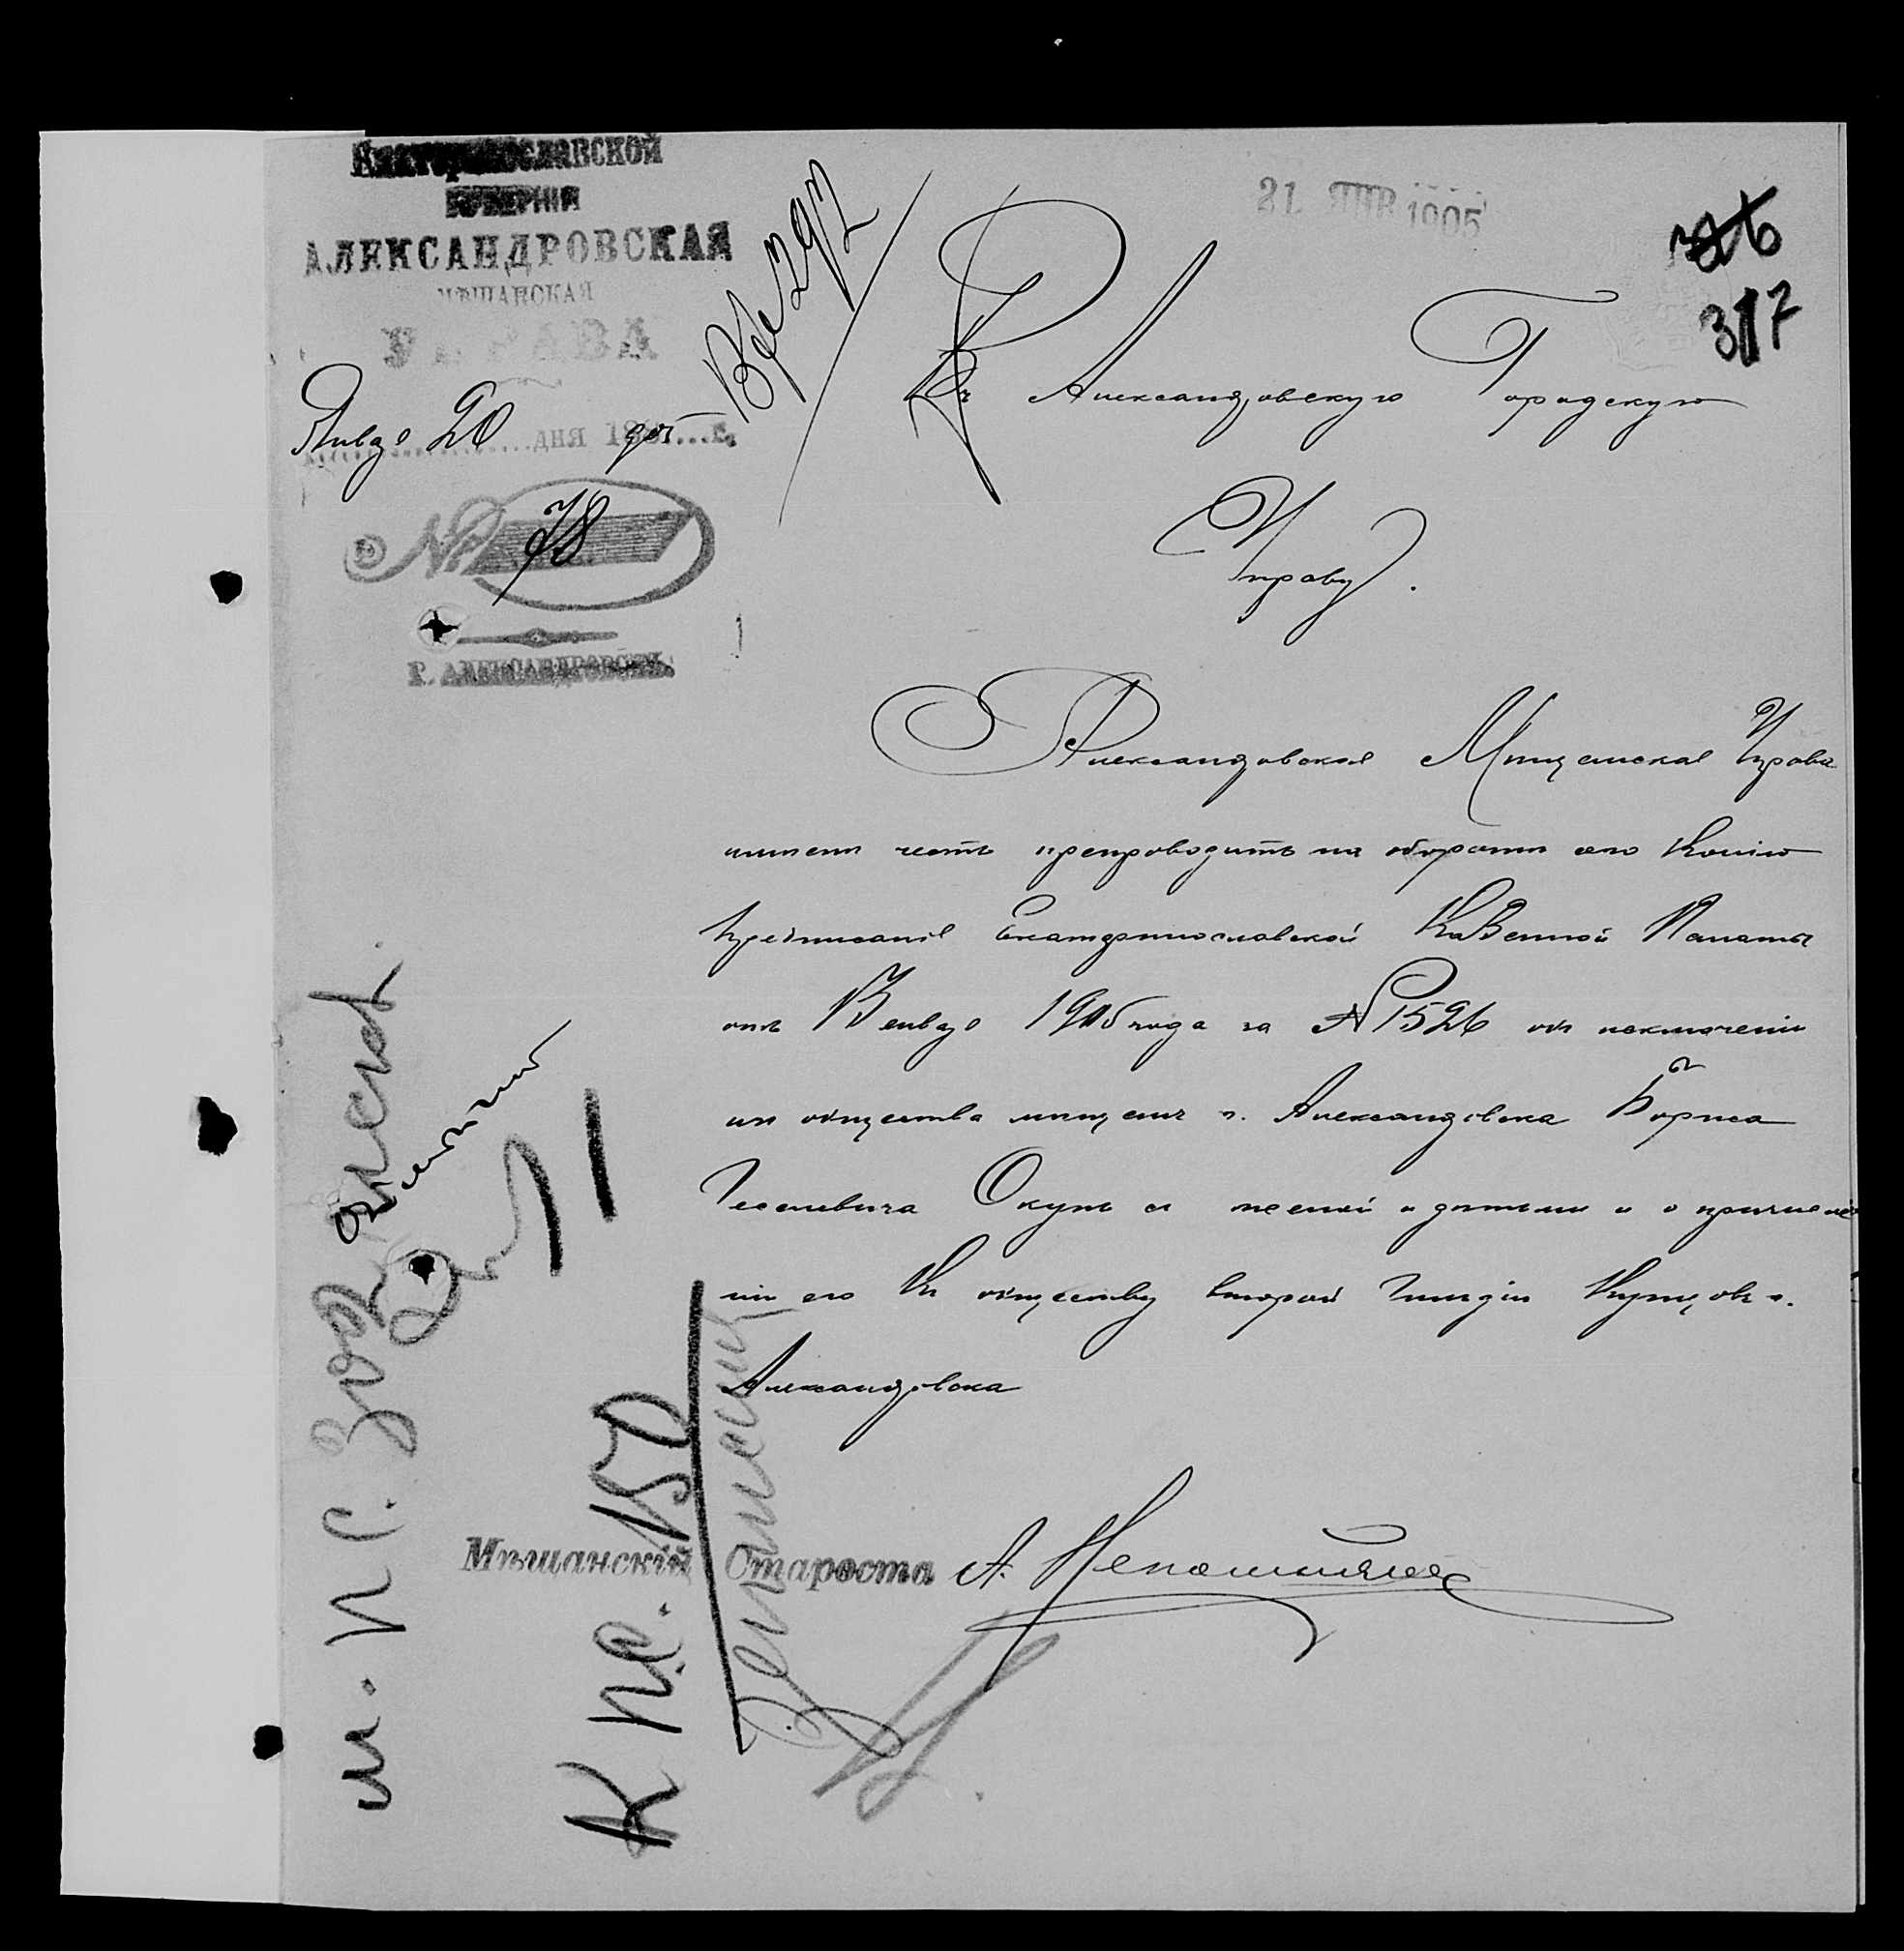 Екатеринославской
ГУБЕРНІИ
АЛЕКСАНДРОВСКАЯ
МѢЩАНСКАЯ
УПРАВА
Январ 20 дня 1905 г.
№ 78
Г. АЛЕКСАНДРОВСКЪ
Вх 292
21 ЯНВ 1905
317
Въ Александровскую Городскую
Управу.
Александровская Мѣщанская Управа
имѣетъ честь препроводить на оборотѣ сего копію
предписанія Екатеринославской Казенной Палаты
отъ 13 января 1905 года за № 1526 объ исключеніи
изъ общества мѣщанъ г. Александровска Бориса
Гесселевича Окунь съ женой и дѣтьми и о причисле
ніи его къ обществу второй гильдіи купцовъ г.
Александровска
Мѣщанскій Староста А.
К № 150